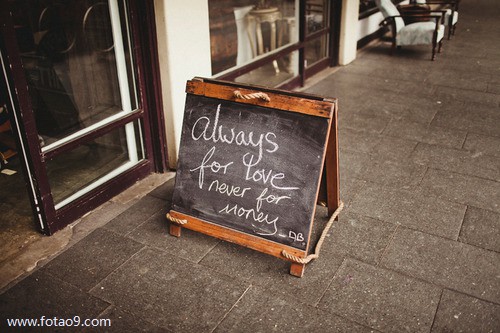 Always
for love
never for
money
DB
www.fotao9.com